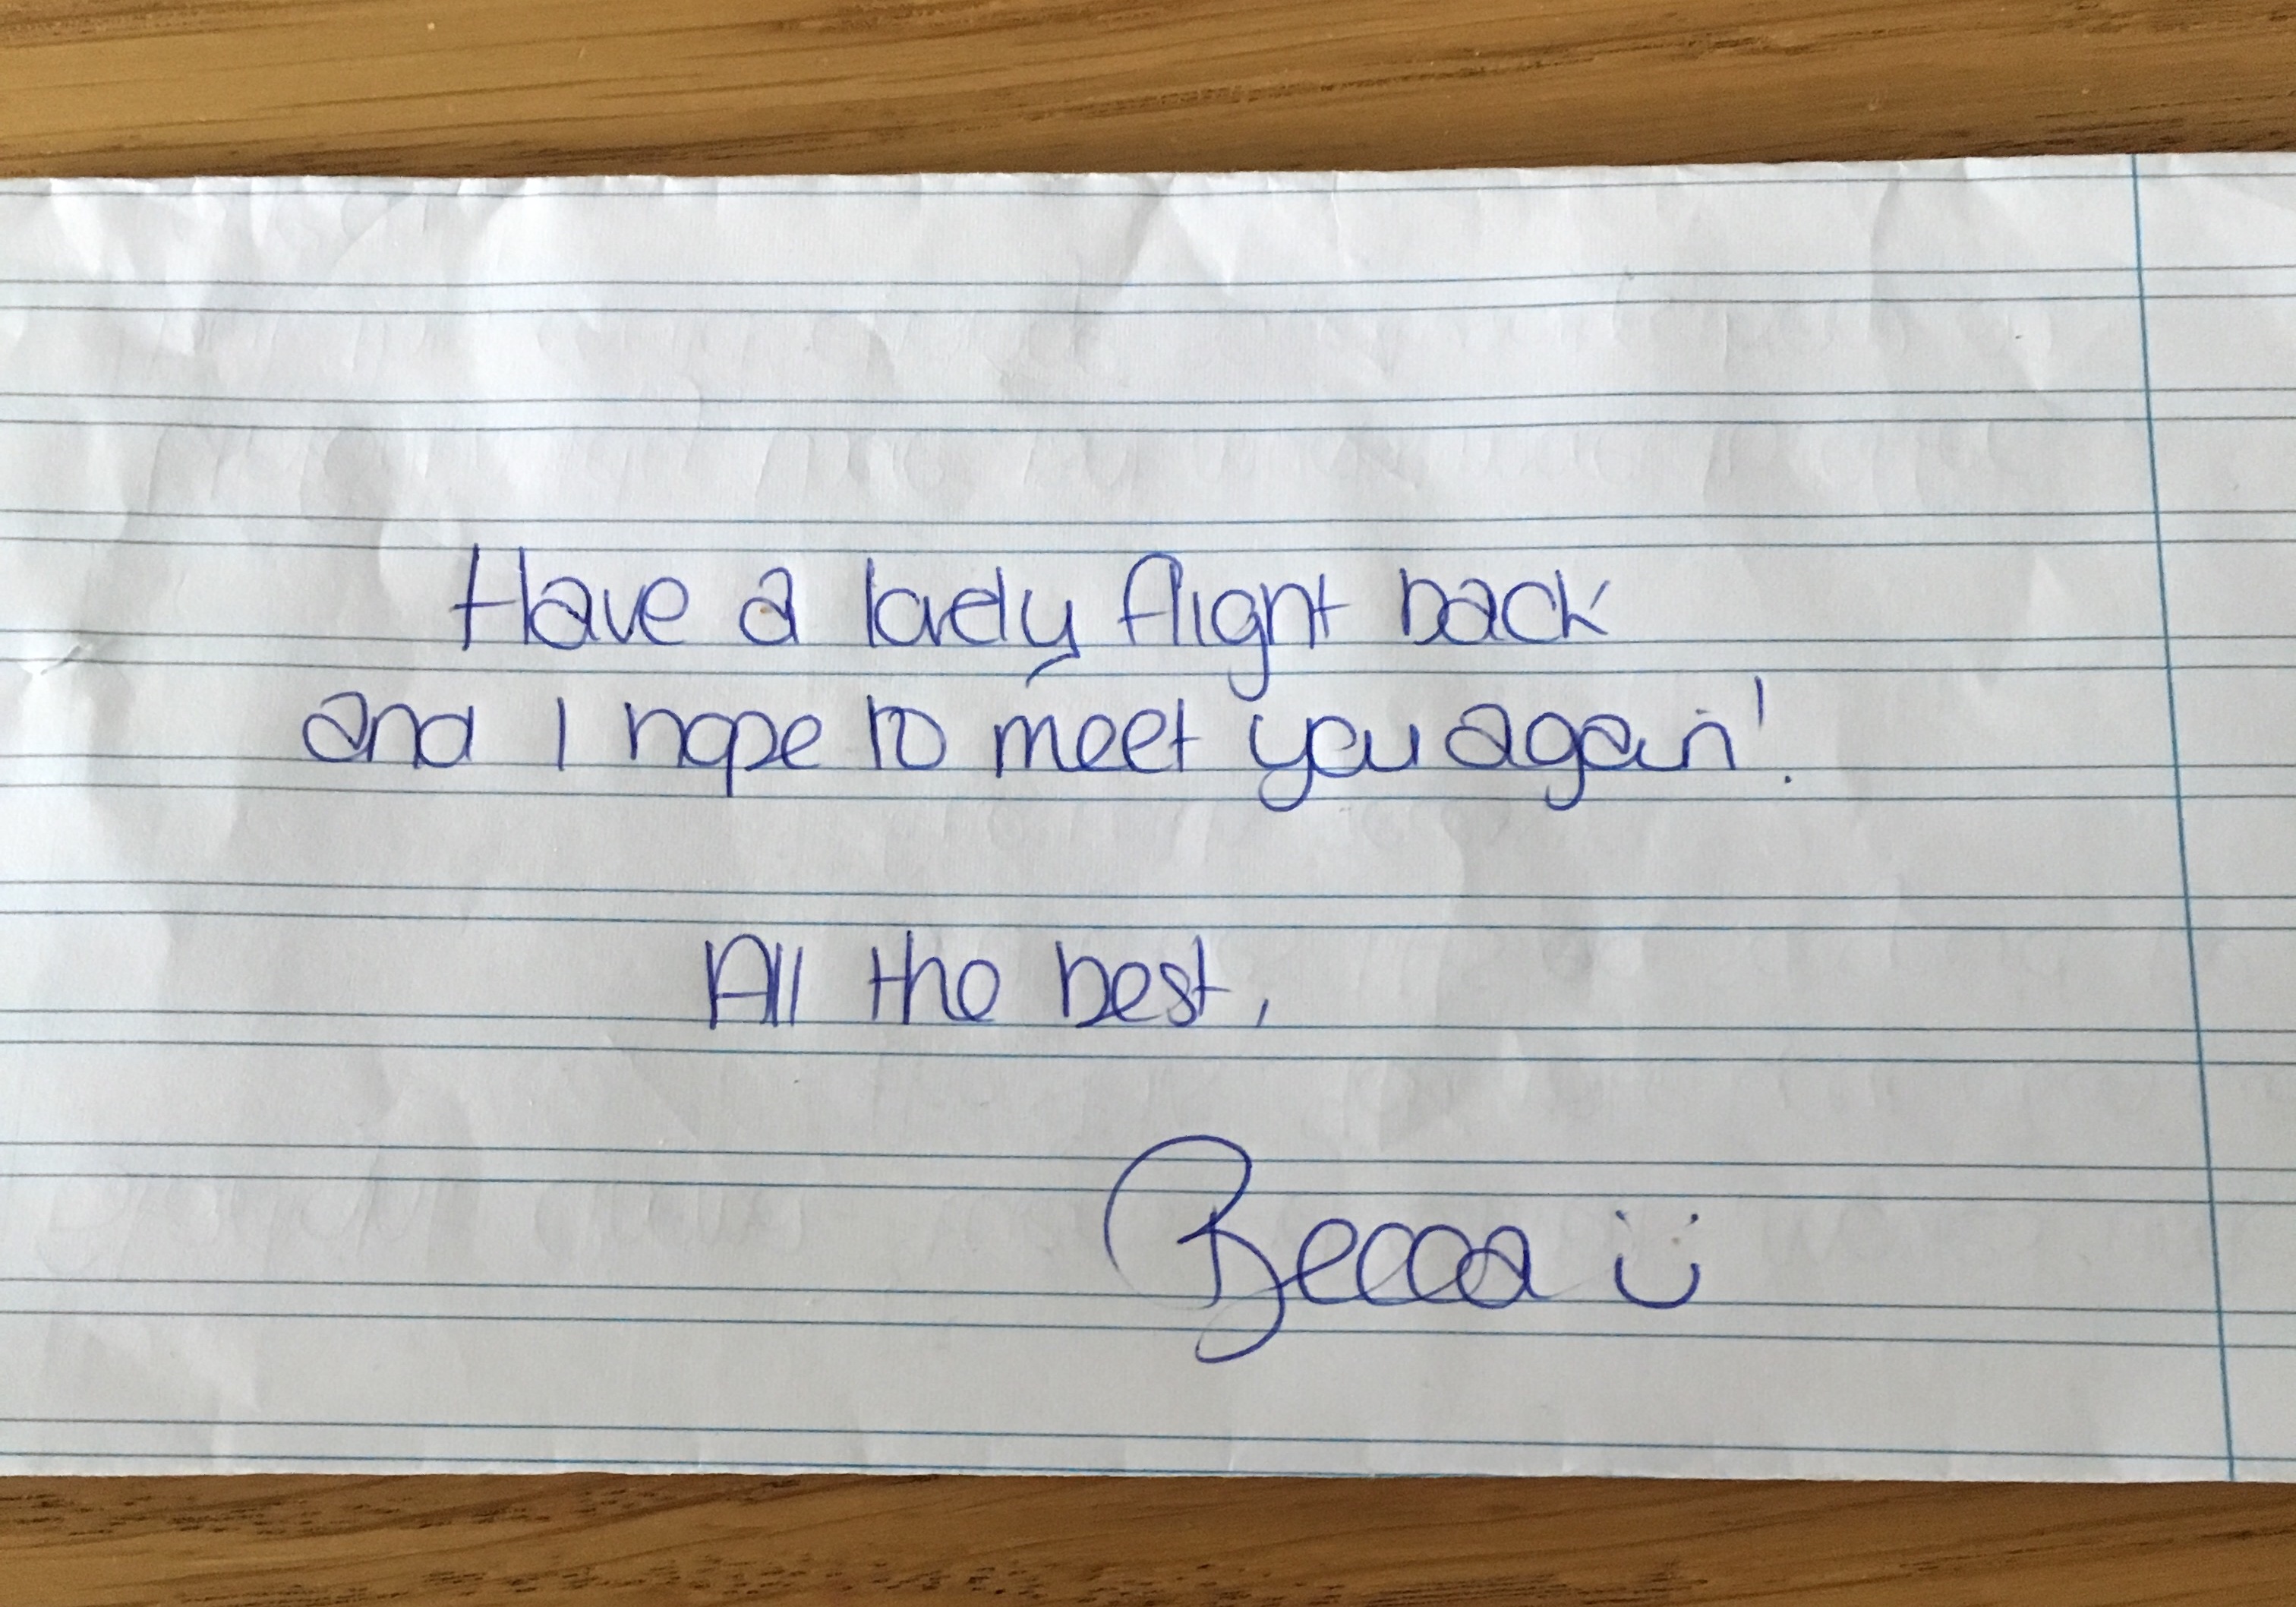 Have a lovely flight back
and I hope to meet you again!
All the best,
Becca :)